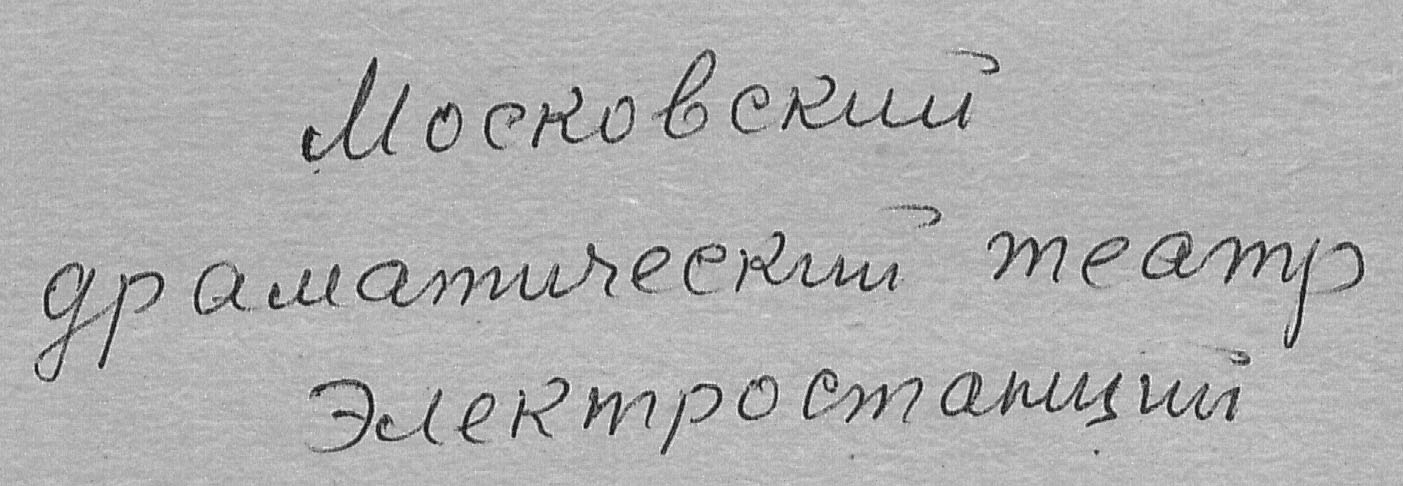 Московский
драматический театр
Электростанций